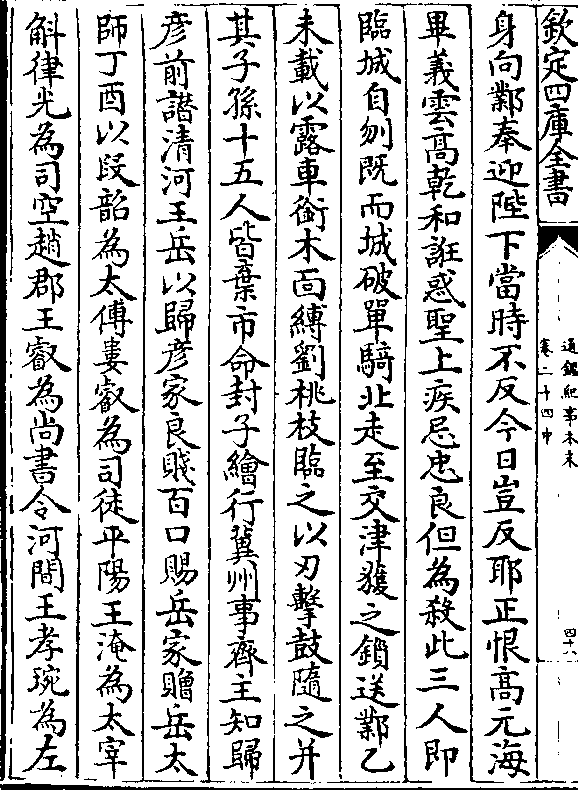 欽定四庫全書
通鑑紀事本末
卷二十四中
四十八
身向鄴奉迎陛下當時不反今日豈反耶正恨高元海
畢義雲高乾和誑惑聖上疾忌忠良但為殺此三人即
臨城自刎既而城破單騎北走至交津獲之鎖送鄴乙
未載以露車銜木面縛劉桃枝臨之以刃擊鼓隨之并
其子孫十五人皆棄市命封子繪行冀州事齊主知歸
彦前譖清河王岳以歸彦家良賤百口賜岳家贈岳太
師丁酉以段韶為太傅婁叡為司徒平陽王淹為太宰
斛律光為司空趙郡王叡為尚書令河間王孝琬為左